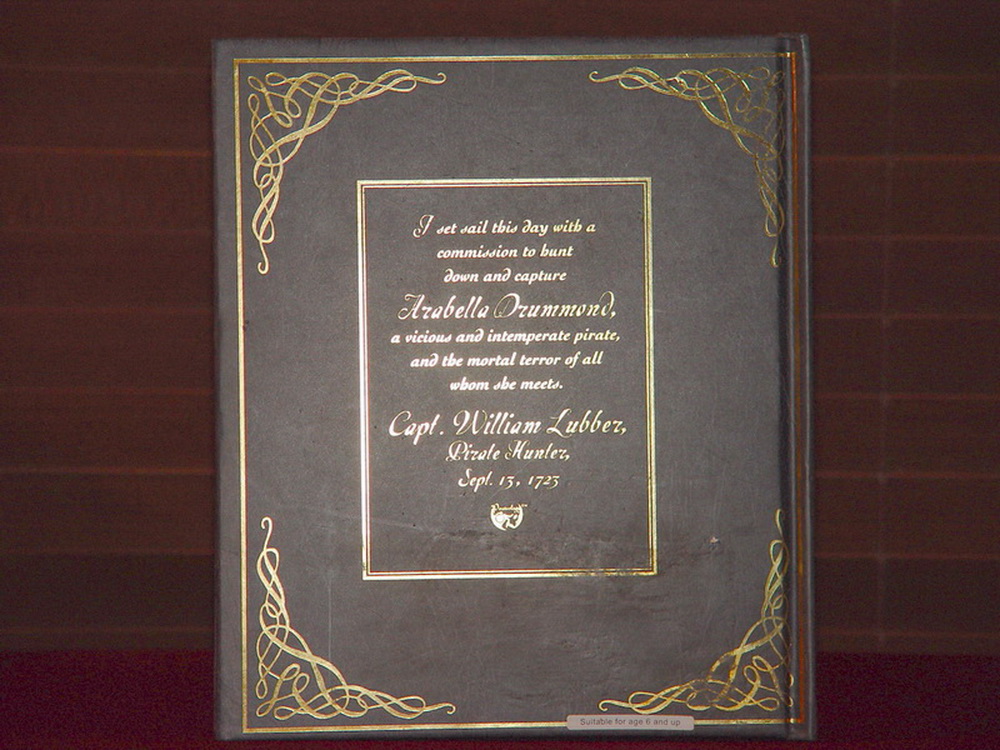 I set sail this day with a
commission to hunt
down and capture
Arabella Drummond,
a vicious and intemperate pirate,
and the mortal terror of all
whom she meets.
Capt. William Lubber,
Pirate Hunter,
Sept. 13, 1723
Suitable for age 6 and up